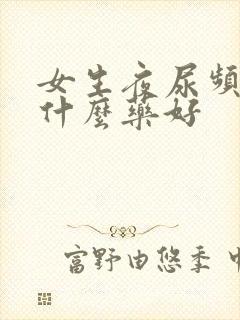 女生夜尿頻
什麼藥好
富野由悠季